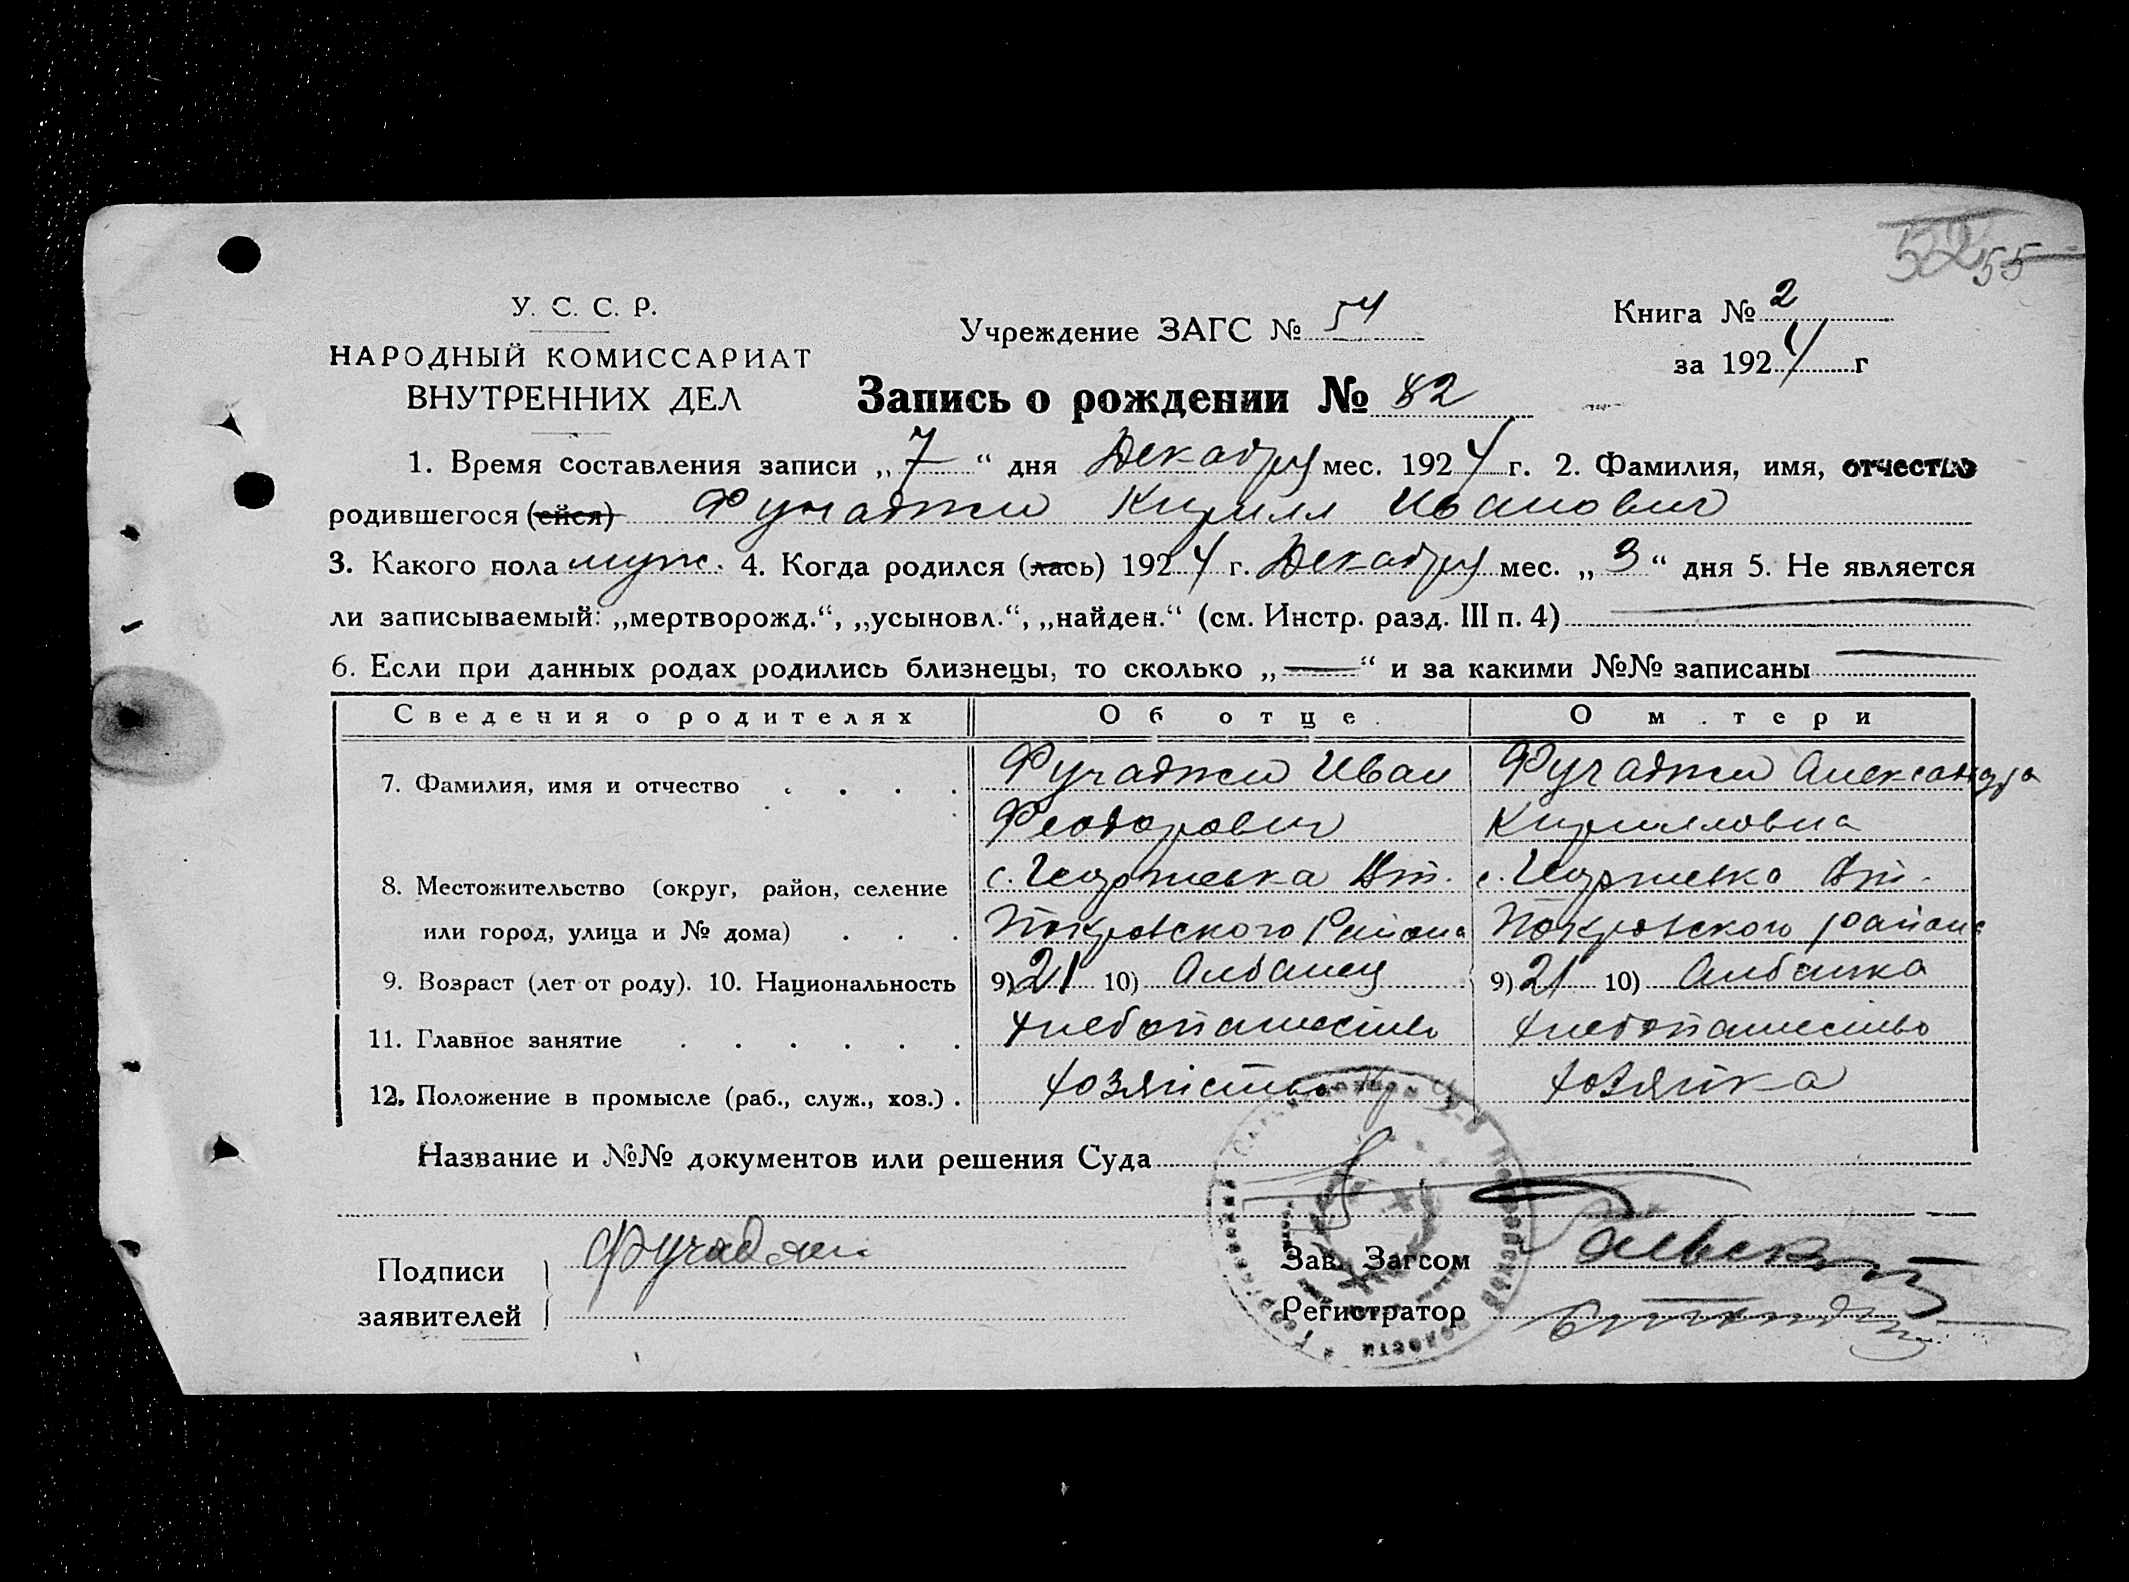 52 55
У. С. С. Р.
НАРОДНЫЙ КОМИССАРИАТ
ВНУТРЕННИХ ДЕЛ
Учреждение ЗАГС № 54
Книга № 2
за 1924 г
Запись о рождении № 82
1. Время составления записи „7“ дня Декабря мес. 1924 г. 2. Фамилия, имя, отчество
родившегося (ейся) Фучаджи Кирилл Иванович
3. Какого пола муж. 4. Когда родился (лась) 1924 г. Декабря мес. „3“ дня 5. Не является
ли записываемый: „мертворожд.“, „усыновл.“, „найден.“ (см. Инстр. разд. III п. 4)
6. Если при данных родах родились близнецы, то сколько „—“ и за какими №№ записаны
Сведения о родителях Об отце. О м.тери
7. Фамилия, имя и отчество Фучаджи Иван Фучаджи Александра
Феодорович Кирилловна
8. Местожительство (округ, район, селение с. Георгиевка с. Георгиевка
или город, улица и № дома) Покровского Района Покровского района
9. Возраст (лет от роду). 10. Национальность 9) 21 10) Албанец 9) 21 10) Албанка
11. Главное занятие Хлебопашество Хлебопашество
12. Положение в промысле (раб., служ., хоз.) Хозяйство Хозяйка
Название и №№ документов или решения Суда
Подписи
заявителей
Фучаджи
Зав. Загсом
Регистратор